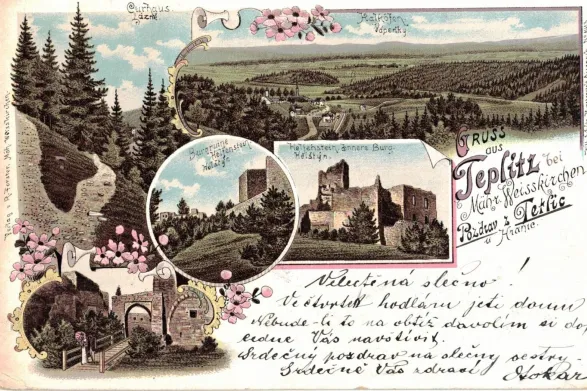 Curhaus
Lázně
Kalköfen
Vápenky
Burgruine
Helfenstein
Helfštýn
Helfenstein, innere Burg.
Helfštýn.
Gruss
aus
Teplitz bei
Mähr. Weisskirchen
Pozdrav z Teplic
u Hranic.
Velectěná slečno!
Ve čtvrtek hodlám jeti domů
Nebude-li to na obtíž davolím si do
cidne Vás navštívit.
Srdečný pozdrav na slečny sestry
Srdečně Vás zdraví